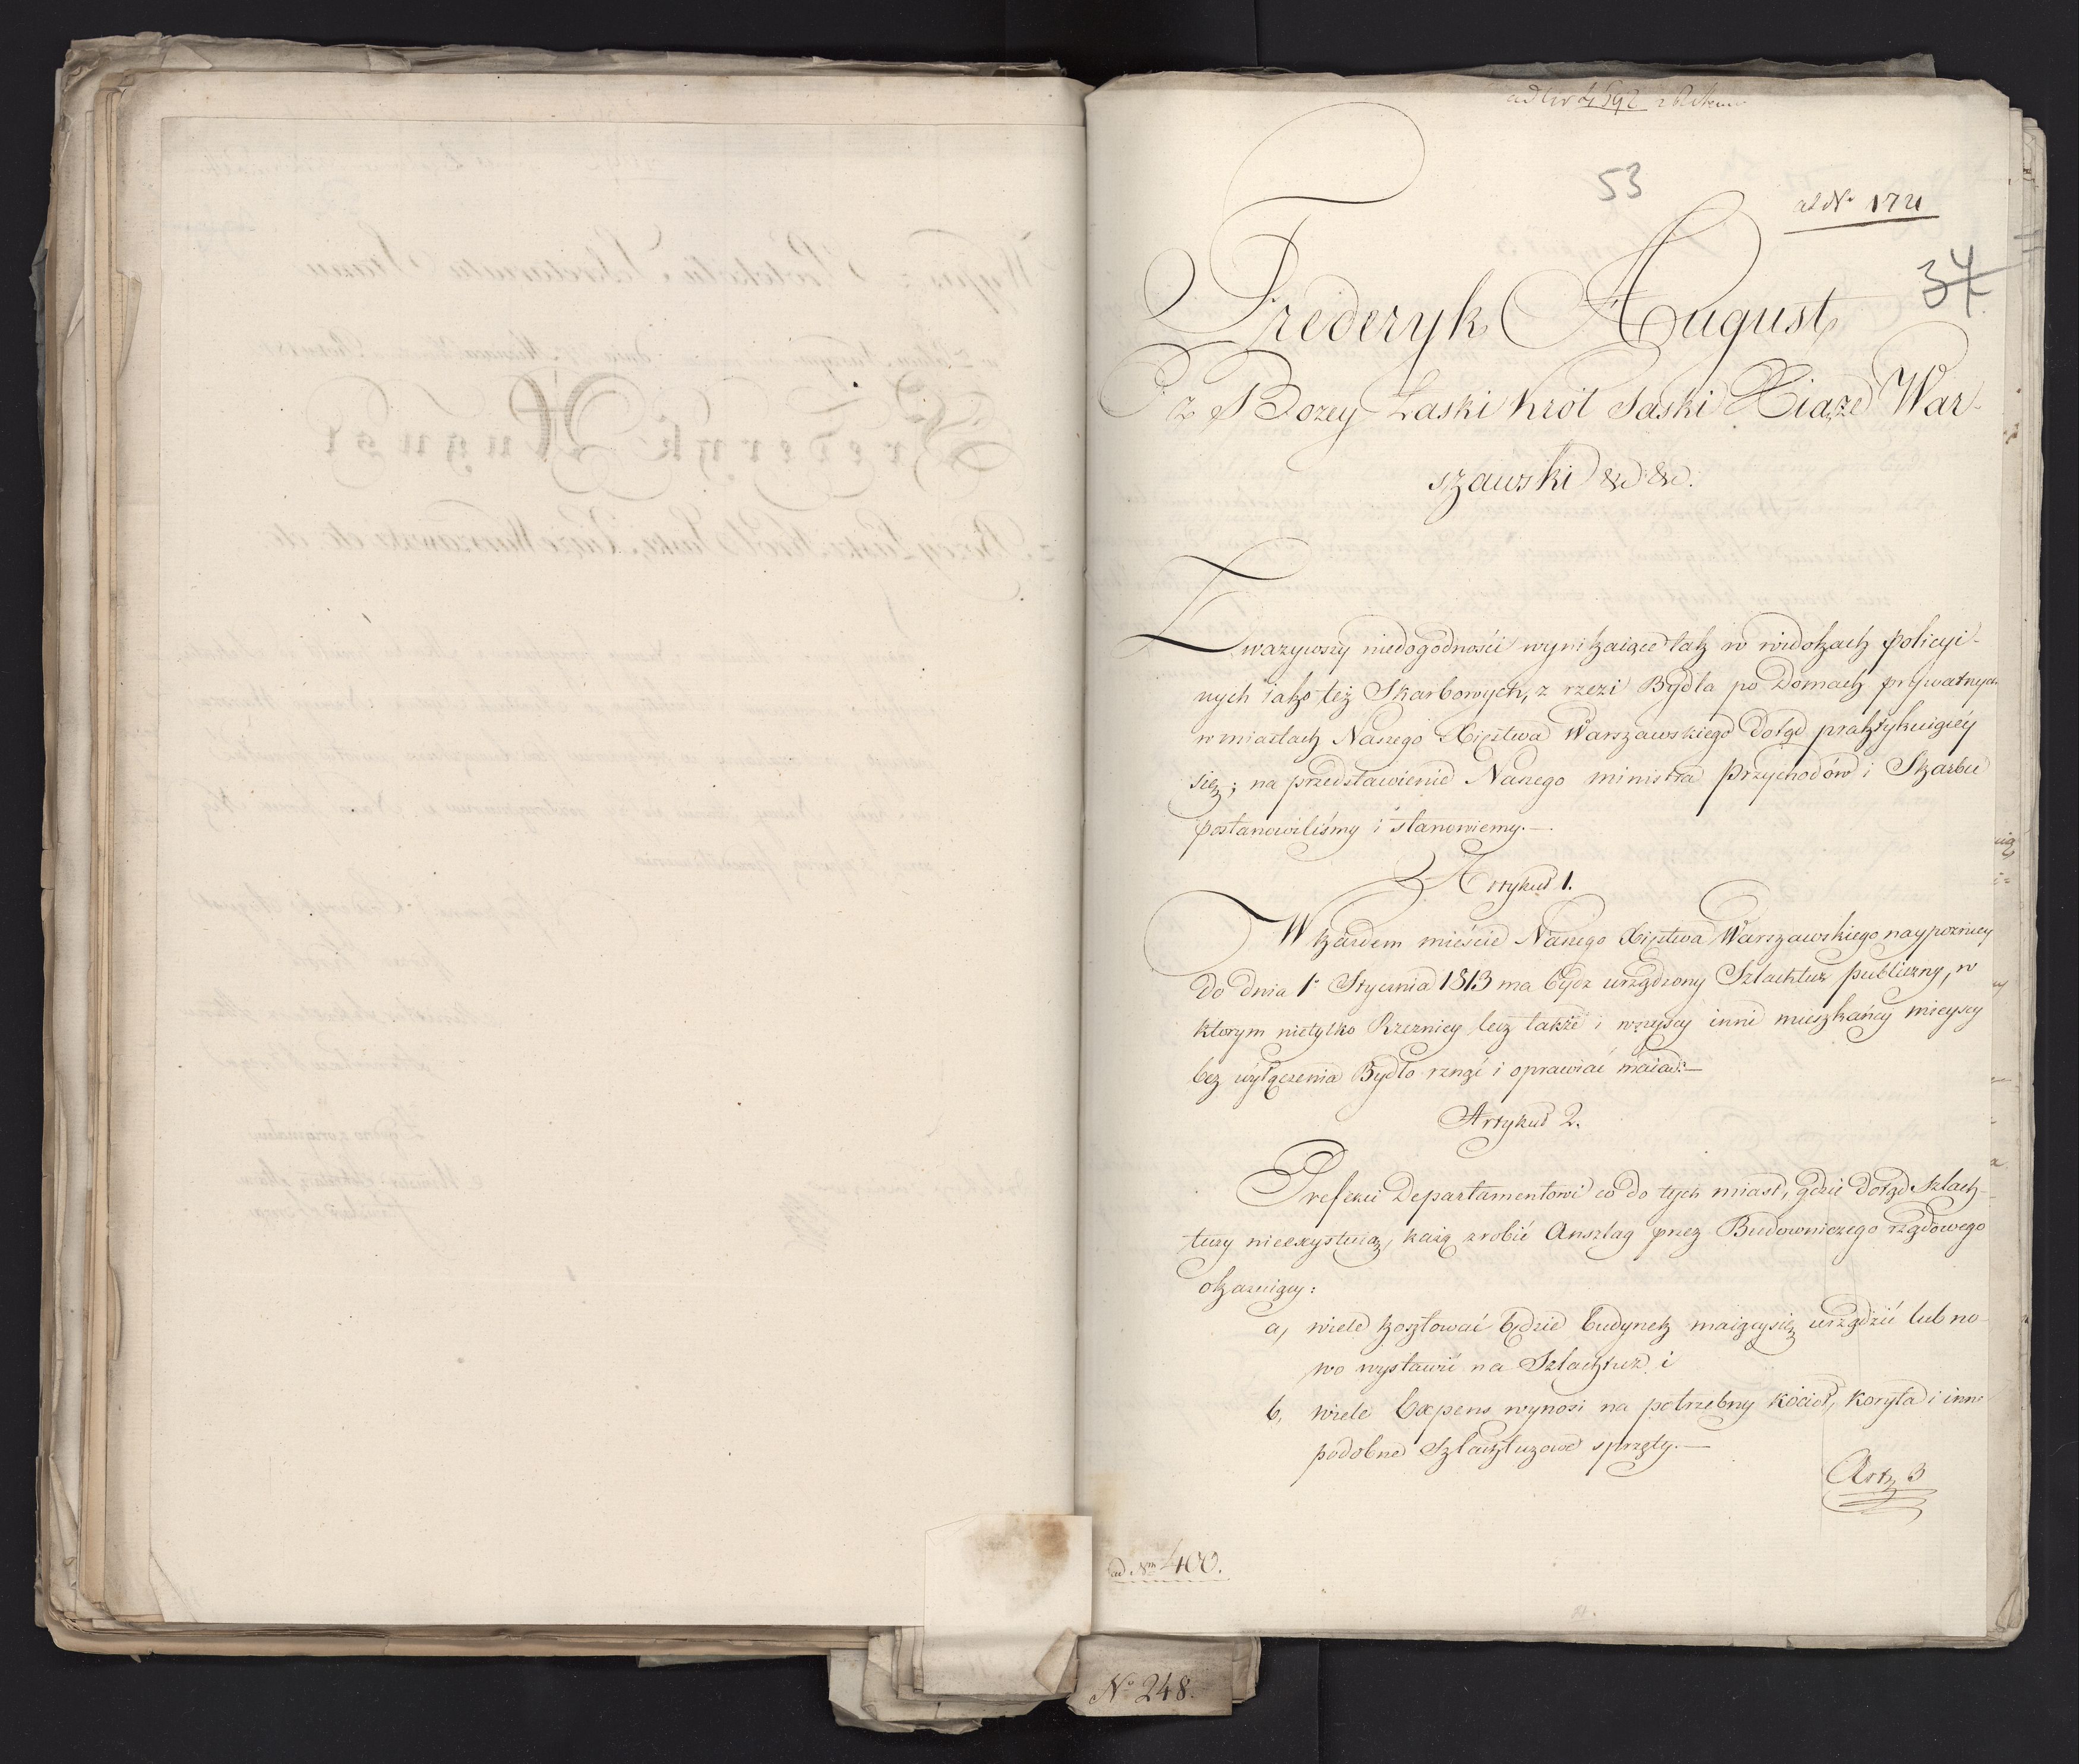 53
ad N° 1721
34
Frederyk August
z Bozey Łaski Król Saski Xiąże War-
szawski &c &c.
Zwazywszy niedogodności wynikaiące tak w widokach policyi-
nych iako też Skarbowych, z rzezi Bydła po Domach prywatnych
w miastach Naszego Xięstwa Warszawskiego dotąd praktykuiącéy
się; na przedstawienie Naszego ministra Przychodów i Skarbu
postanowiliśmy i stanowiemy.—
Artykuł 1.
W każdem mieście Naszego Xięstwa Warszawskiego naypozniey
do dnia 1° Stycznia 1813 ma bydz urządzony Szlachtuz publiczny, w
ktorym nietylko Rzeznicy lecz także i wszyscy inni mieszkańcy mieyscy
bez wyłączenia Bydło rznąć i oprawiać maią.—
Artykuł 2.
Prefekci Departamentowi co do tych miast, gdzie dotąd Szlach-
tuzy nieexystuią, każą zrobić Anszlag przez Budowniczego rządowego
okazuiący:
a, wiele kosztować będzie budynek maiący się urządzić lub no-
wo wystawić na Szlachtuz, i
b, wiele Expens wynosi na potrzebny kocioł, koryta i inne
podobne Szlachtuzowe sprzęty.—
Art. 3
ad Nm 400.
N° 248.